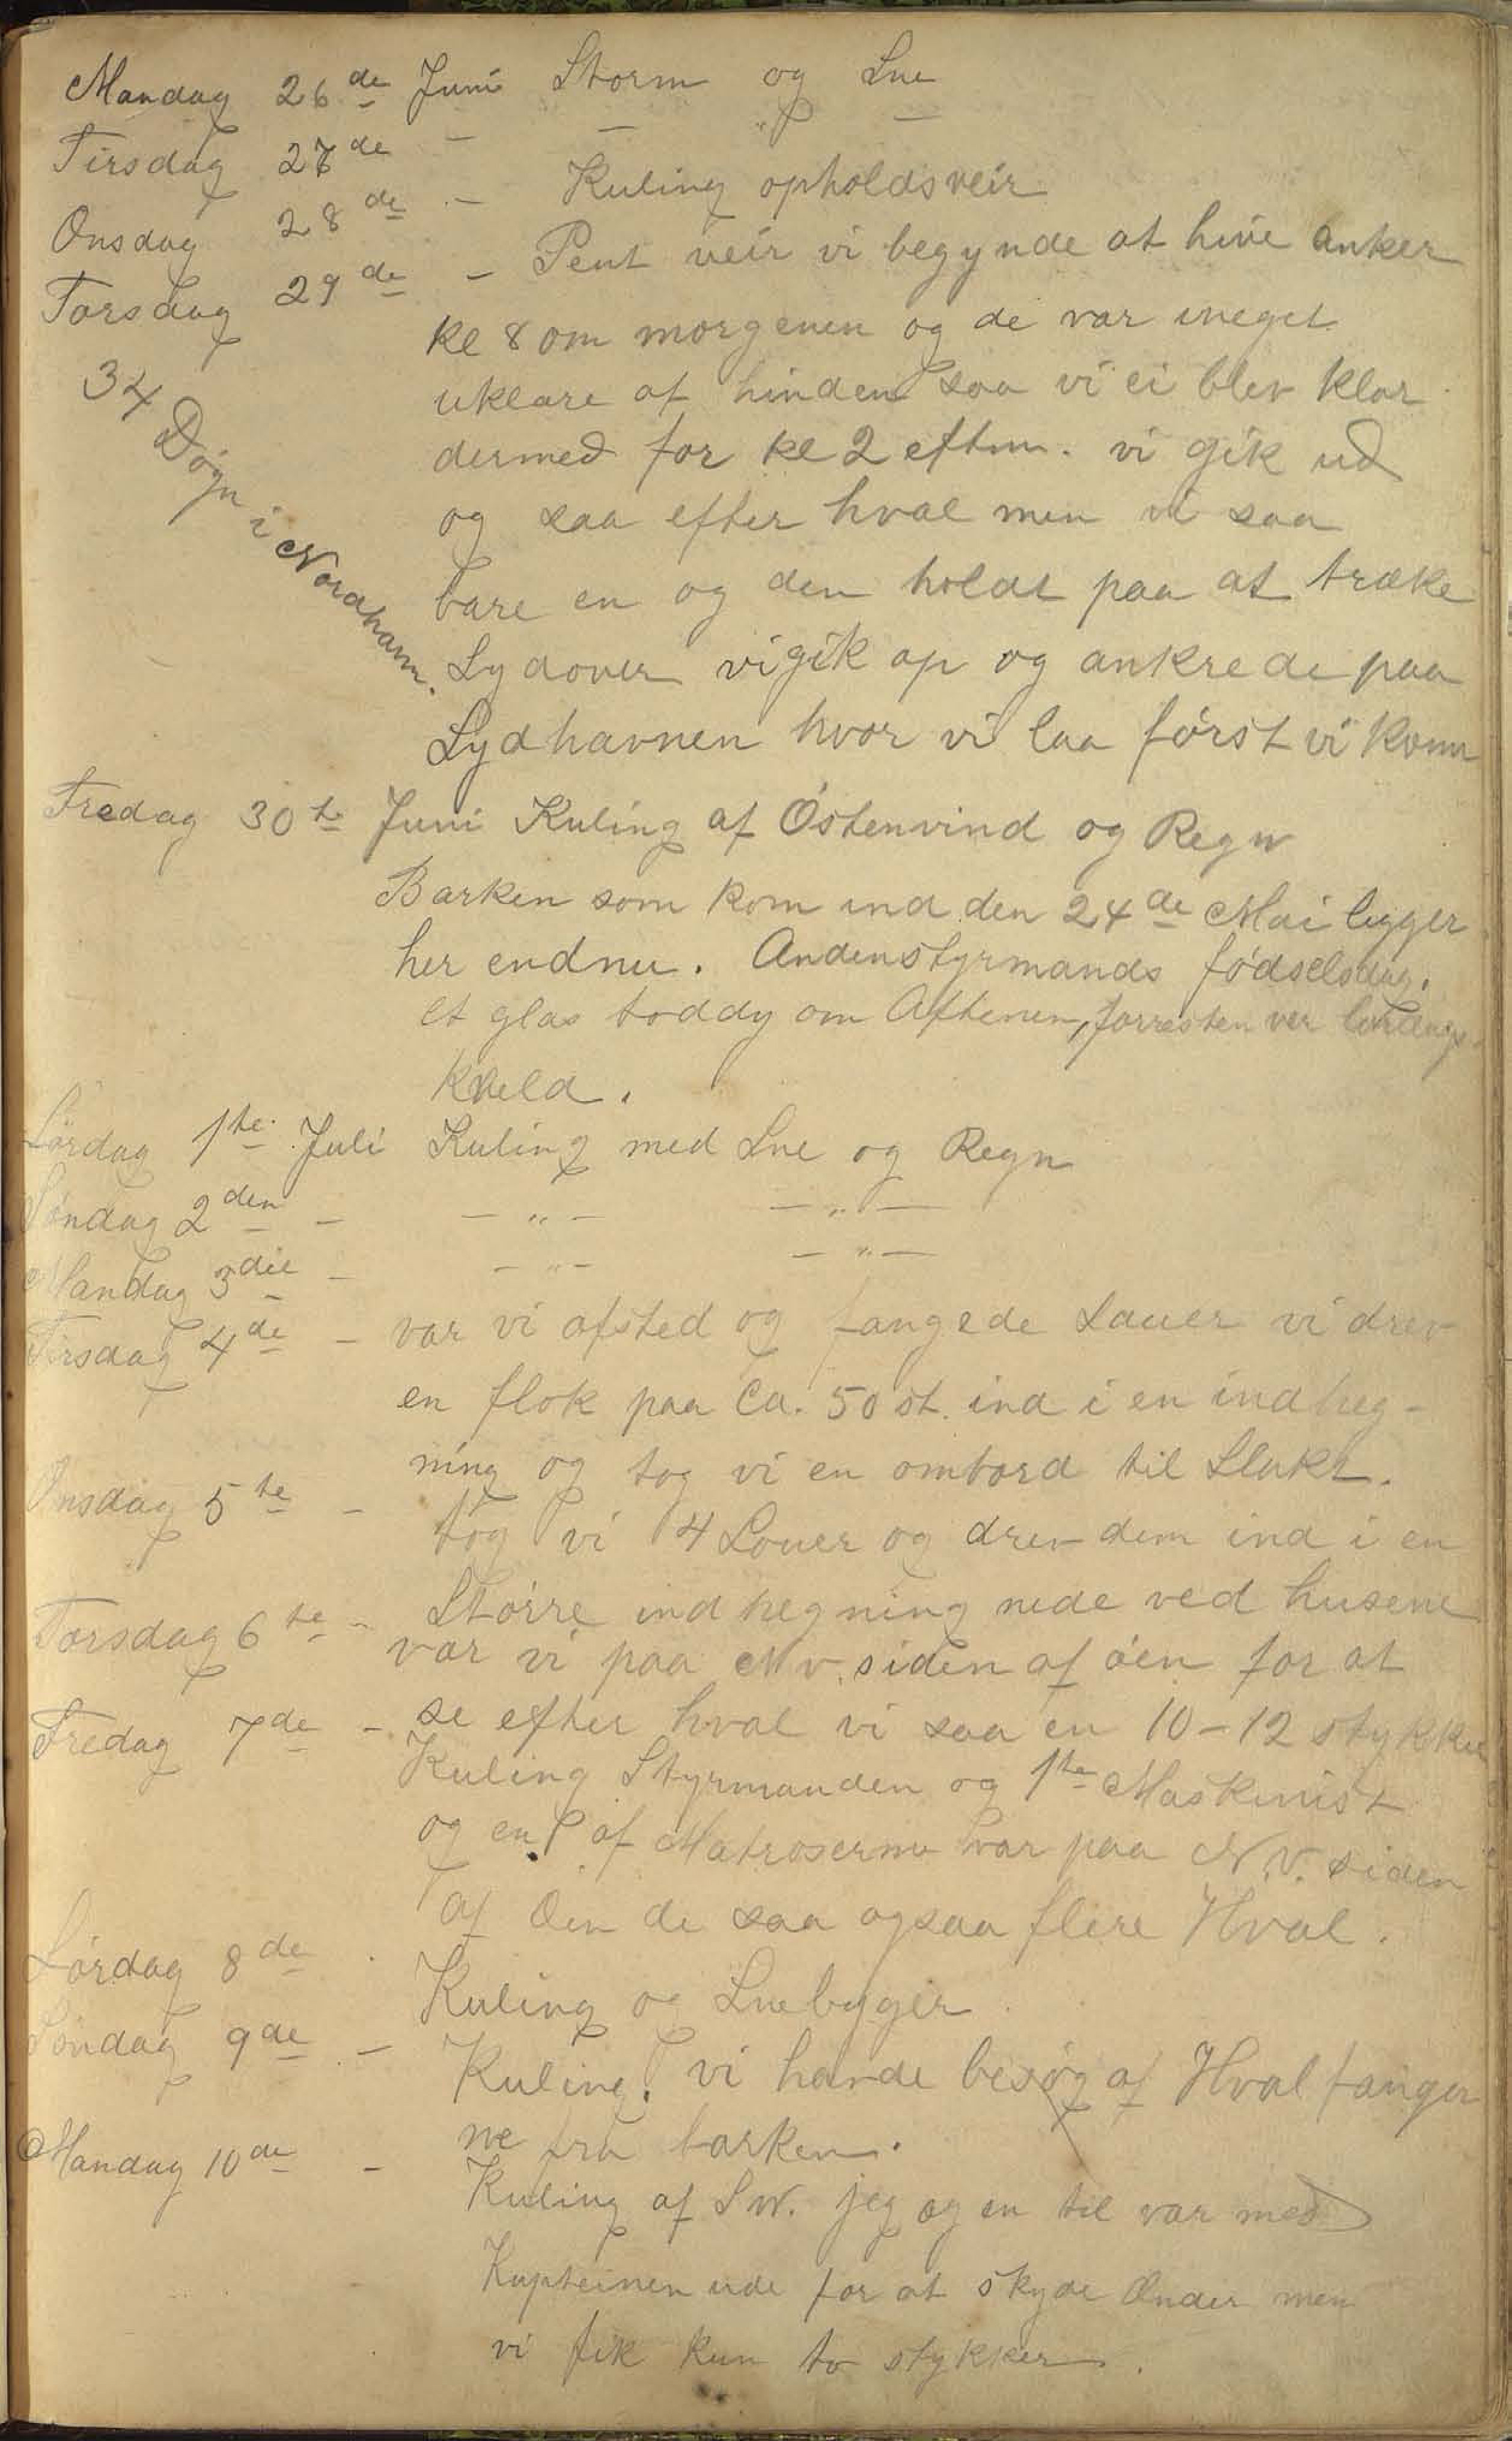 Mandag 26de Juni Storm og Sne
Tirsdag 27de - - " -
Onsdag 28de - Kuling opholdsveir
Torsdag 29de - Pent veir vi begynde at hive anker
kl 8 om morgenen og de var meget
uklare af hinden saa vi ei blev klar
dermed for kl 2 eftm. vi gik ud
og saa efter hval men vi saa
bare en og den holdt paa at træke
Sydover vi gik op og ankrede paa
Sydhavnen hvor vi laa först vi kom
34 Dögn i Nordhavn.
Fredag 30te Juni Kuling af Östenvind og Regn
Barken som kom ind den 24de Mai ligger
her endnu. Andenstyrmands födselsdag.
et glas toddy om Aftenen, forresten ver
kveld.
Lördag 1te Juli Kuling med Sne og Regn
Söndag 2den - - " - - " -
Mandag 3die - - " - - " -
Tirsdag 4de - var vi afsted og fangede Sauer vi drev
en flok paa Ca. 50 st. ind i en indheg-
ning og tog vi en ombord til Slakt.
Onsdag 5te - tog vi 4 Souer og drev dem ind i en
Större indhegning nede ved husene
Torsdag 6te - var vi paa N.v. siden af öen for at
se efter hval vi saa en 10-12 stykker
Fredag 7de - Kuling Styrmanden og 1te Maskinist
og en af Matroserne var paa N.V. siden
af Öen de saa ogsaa flere Hval.
Lördag 8de Kuling og Snebyger
Söndag 9de - Kuling. vi havde besög af Hvalfanger
ne fra barken.
Mandag 10de - Kuling af SW. jeg og en til var med
Kapteinen ude for at skyde Ænder men
vi fik kun to stykker.